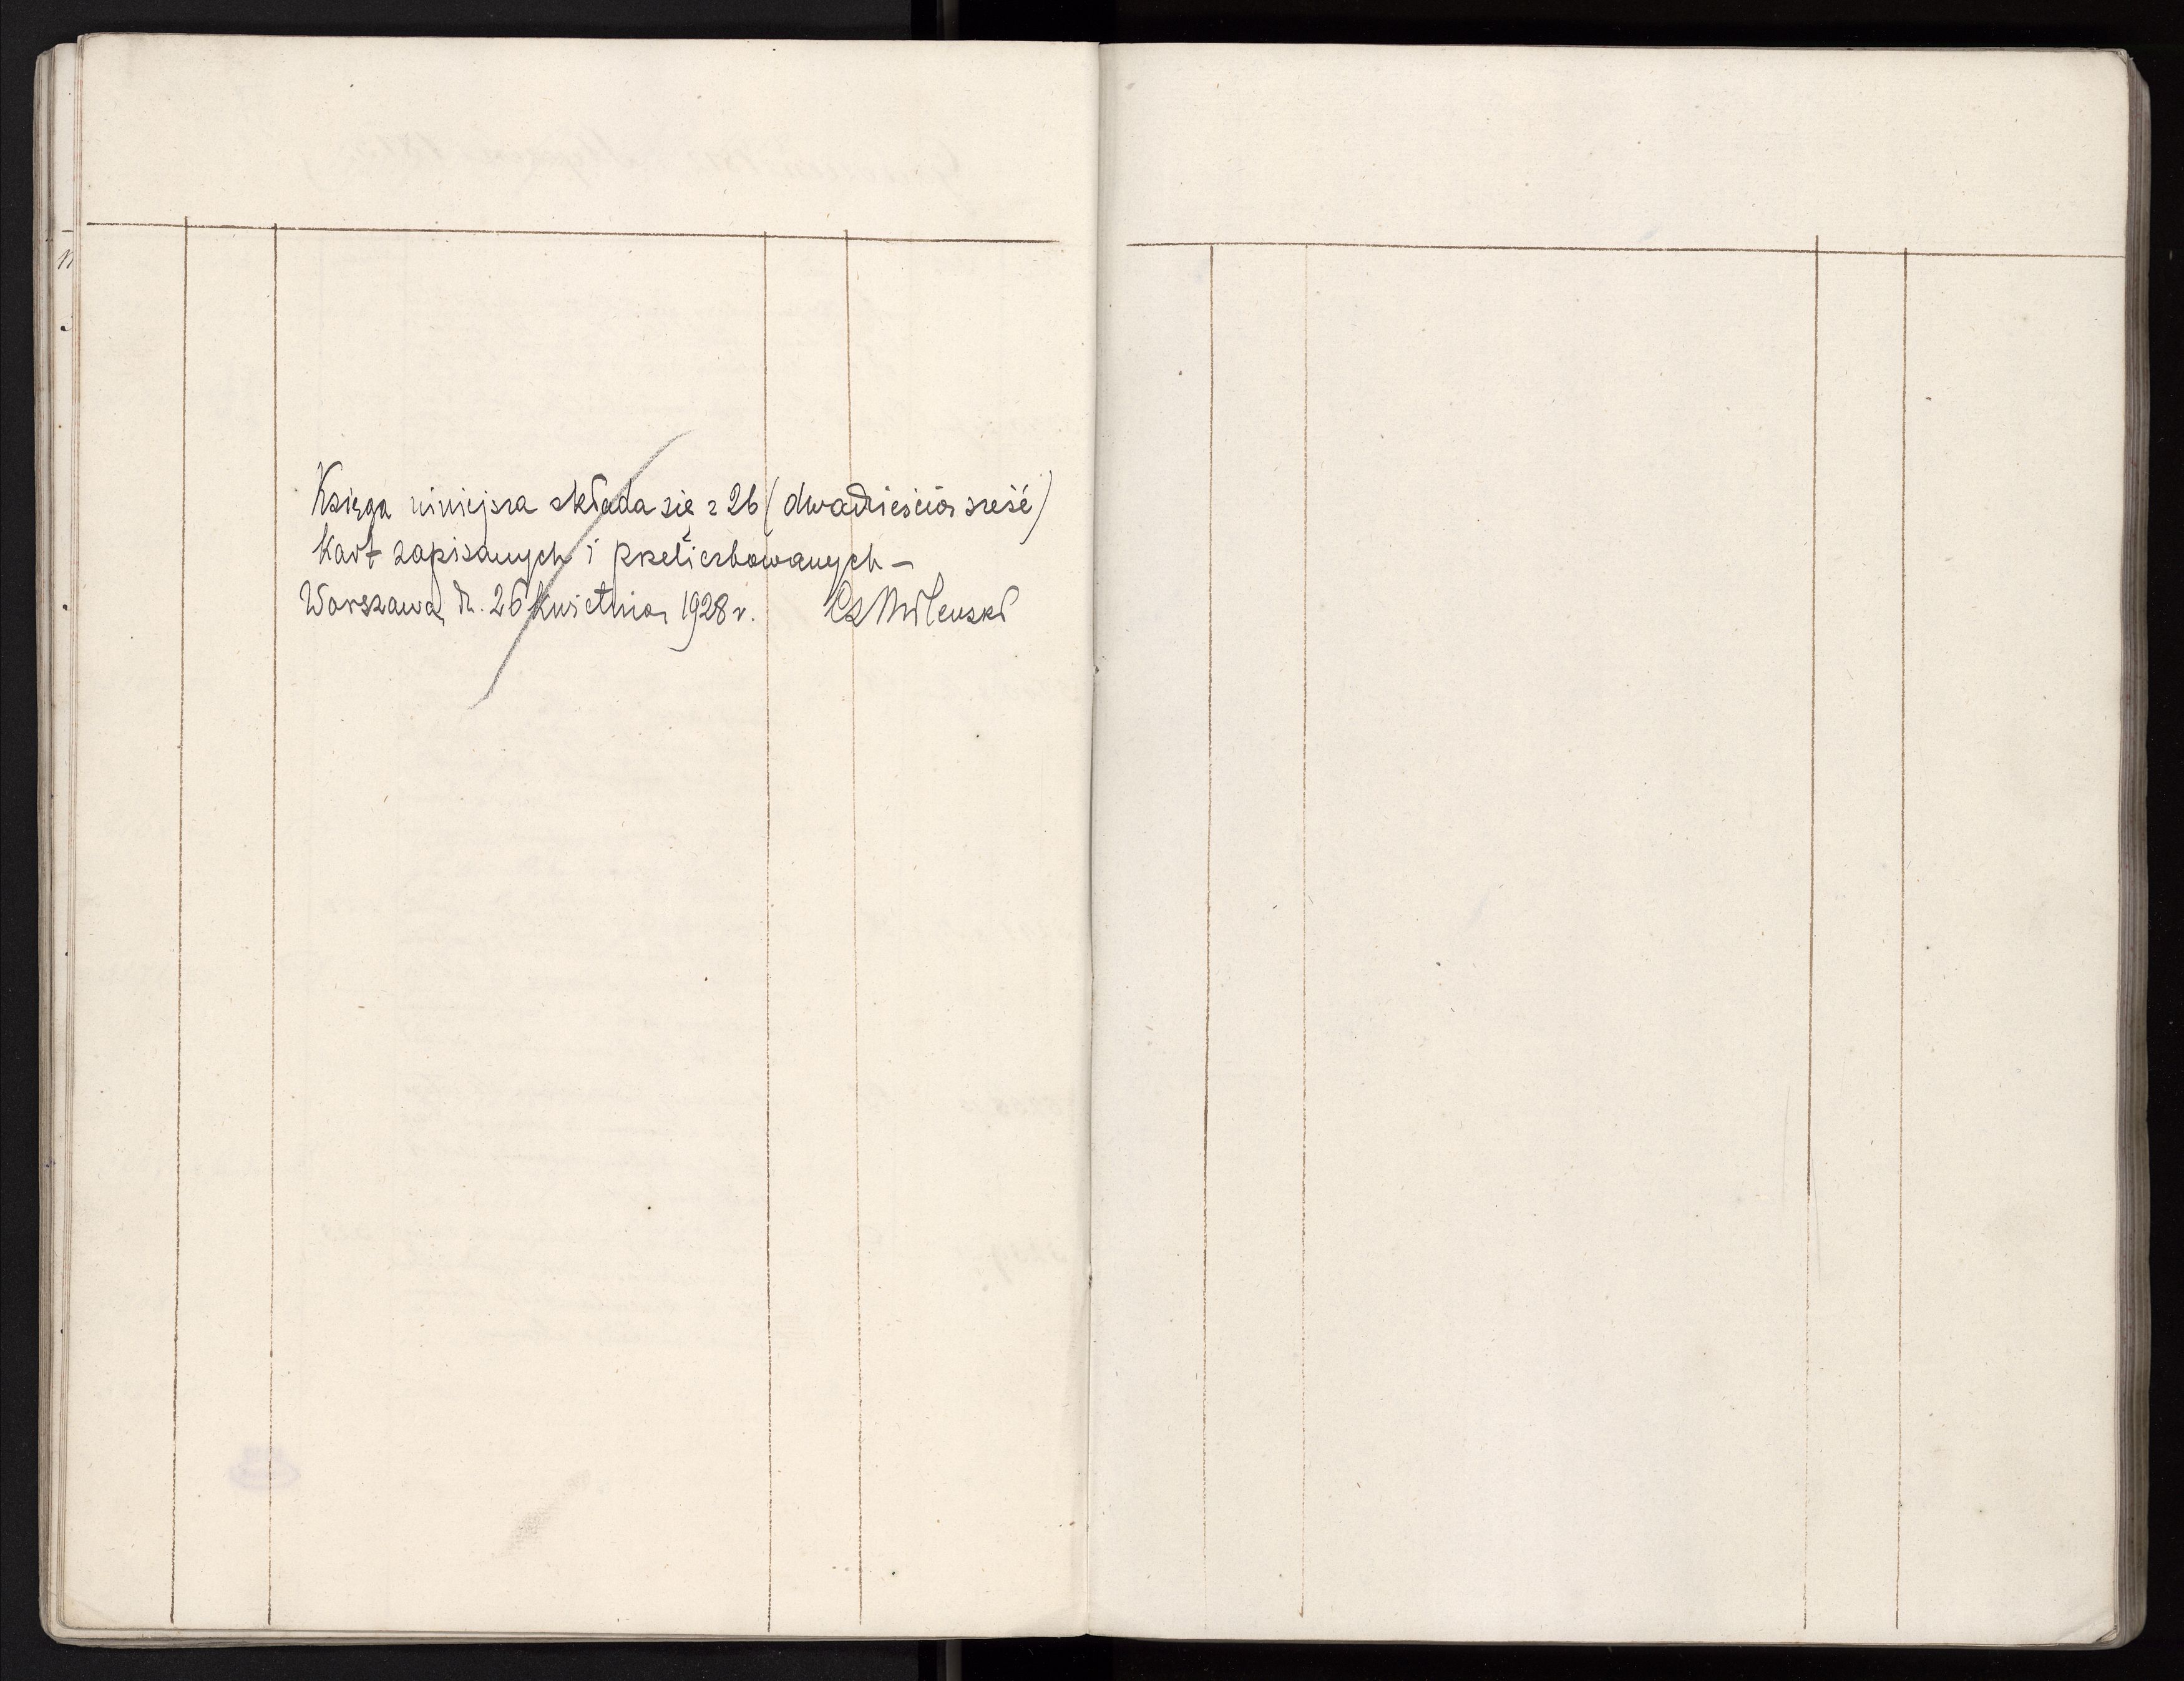 Księga niniejsza składa się z 26 (dwadzieścia sześć)
kart zapisanych i przeliczbowanych —
Warszawa, dn. 26 kwietnia 1928 r. Cz Milewski